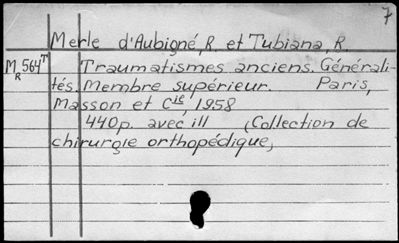 7
Merle d'Aubigné, R. et Tubiana, R.
M_R 564^T Traumatismes anciens. Générali-
tés. Membre supérieur. Paris,
Masson et C^ie, 1958
440p. avec ill (Collection de
chirurgie orthopédique)